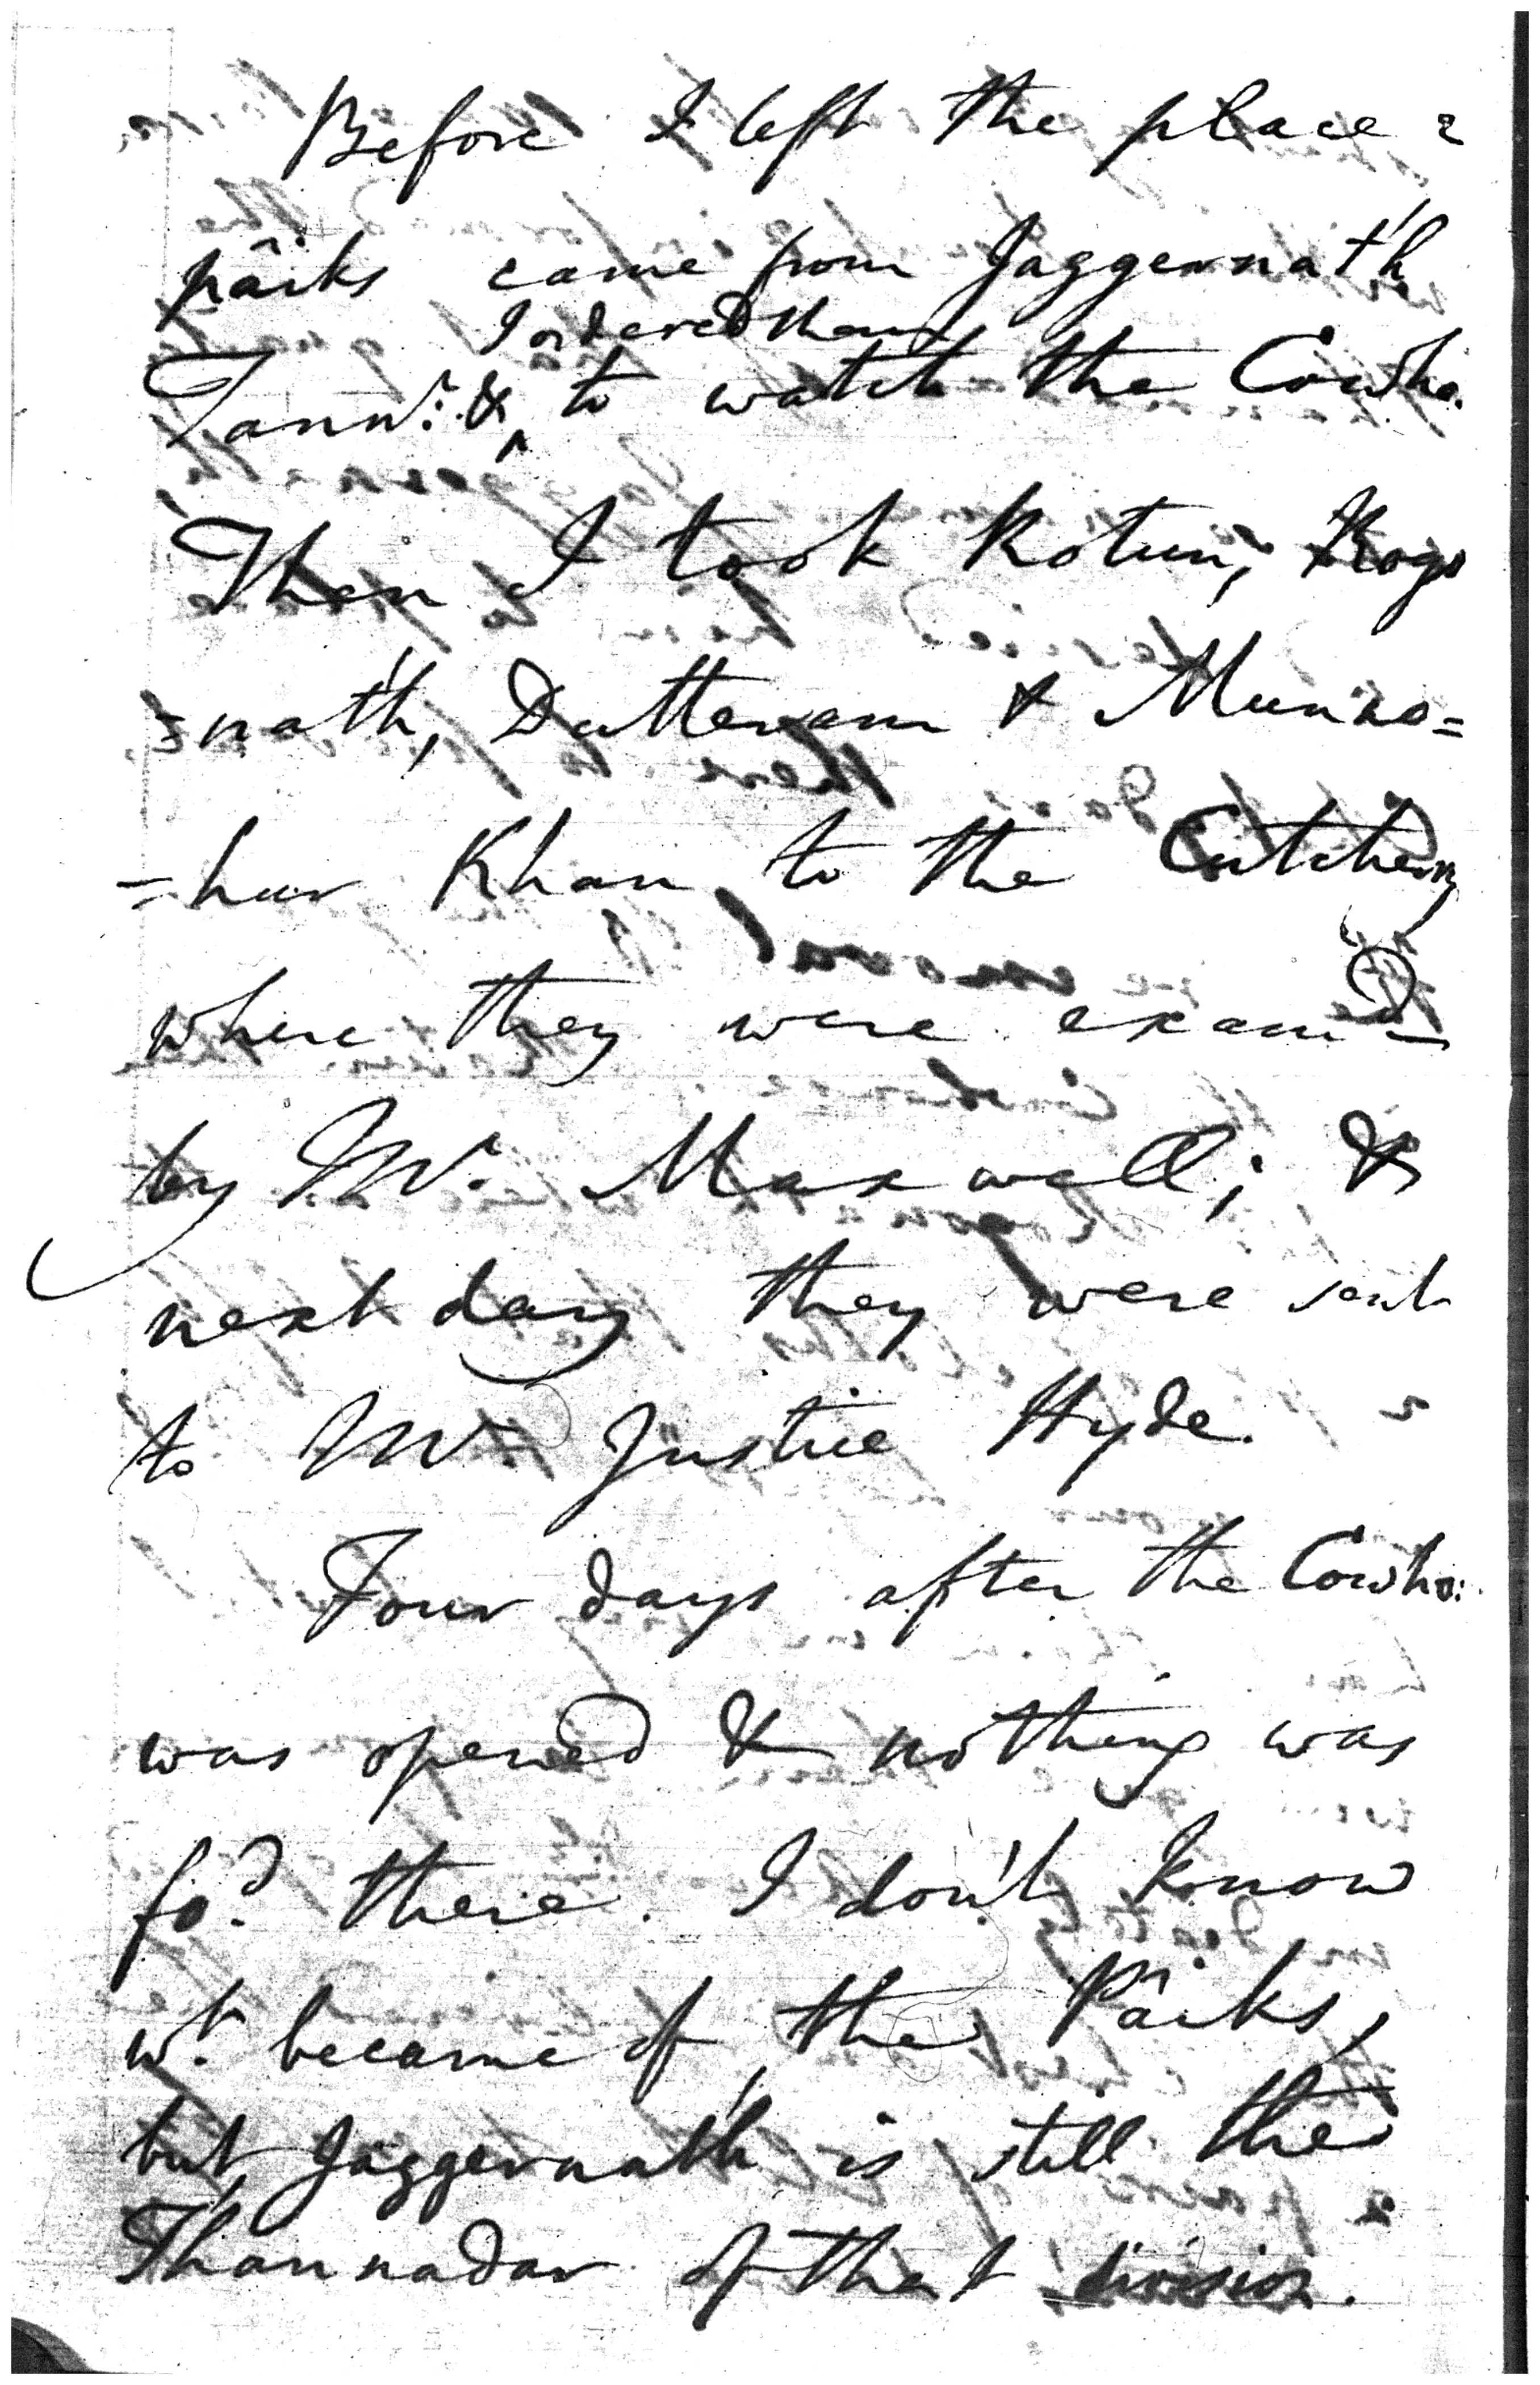 Before I left the place 2
pâiks came from Jaggernath
I ordered them
Tannr. & ^ to watch the Cowho.
Then I took Rotun, Rogo
=nath, Dutteram & Munno=
=hur Khan, to the Cutcherry
where they were examd
by Mr. Maxwell; &
next day they were sent
to Mr. Justice Hyde.
Four days after the Cowho:
was opened & nothing was
fod. there. I don't know
wt. became of the Pâiks,
but Jaggernath is still the
Thannadar of that division.